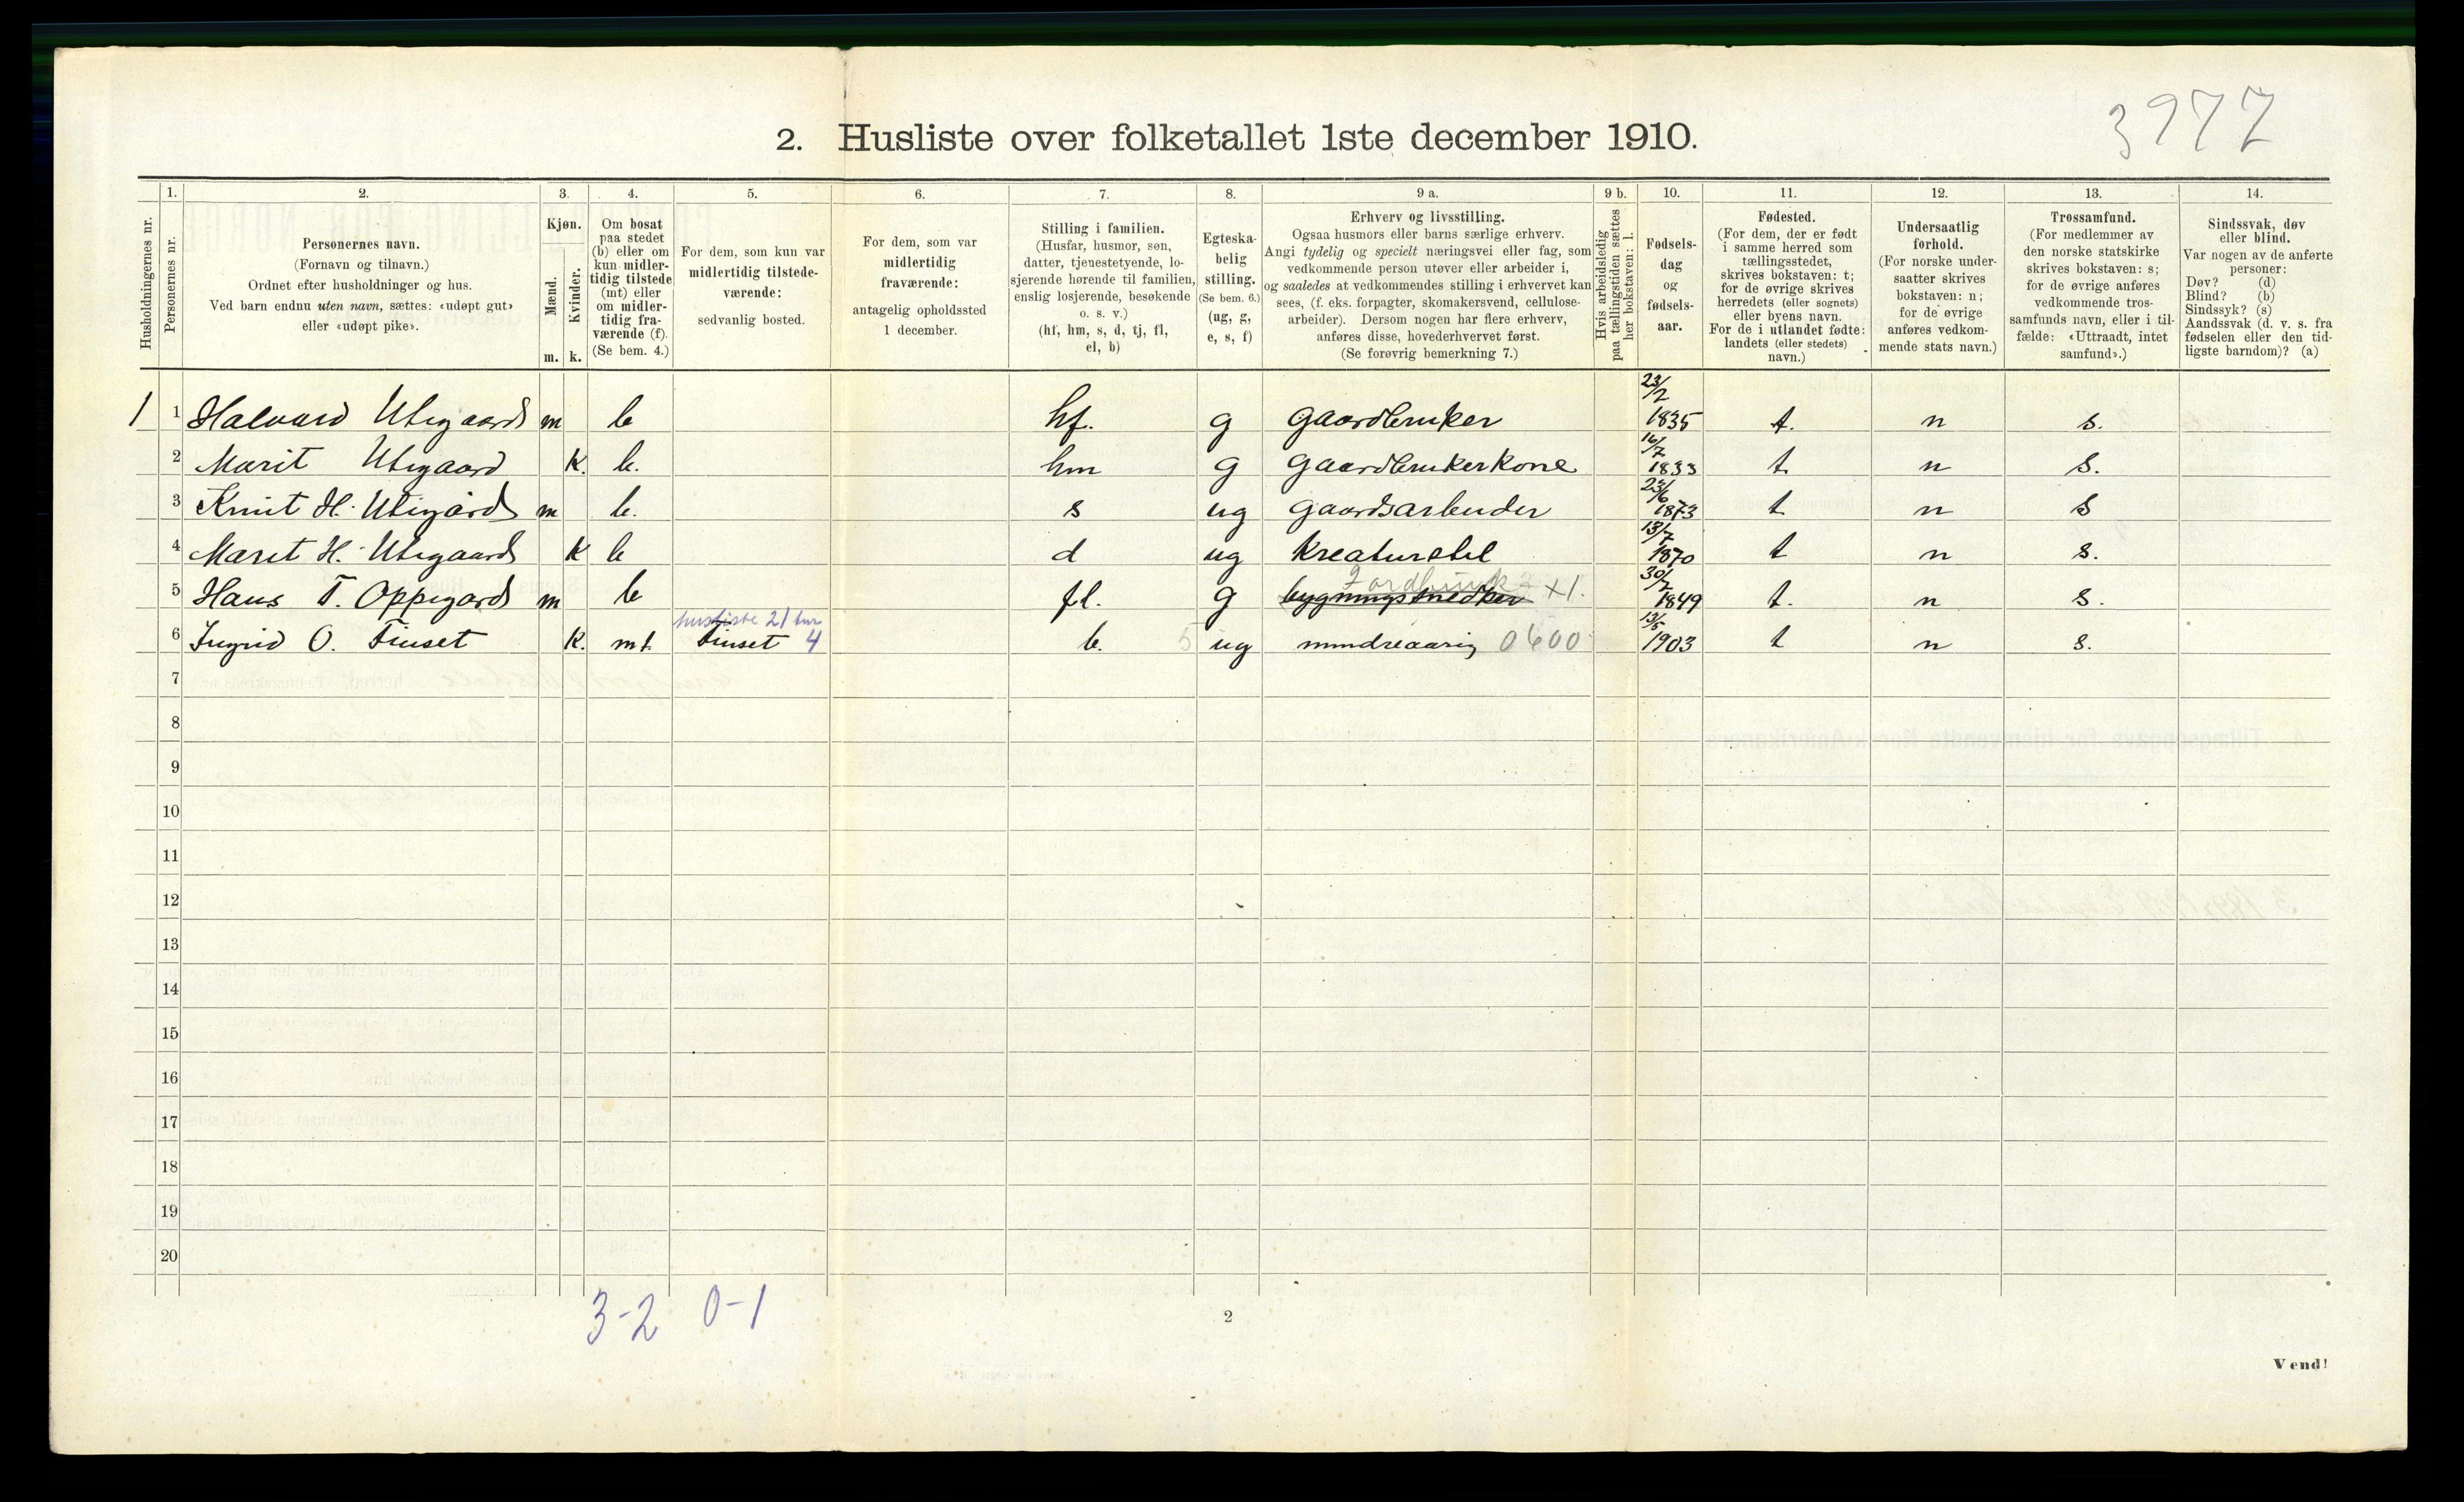 3977
2. Husliste over folketallet 1ste december 1910.
Husholdningernes nr.
1.
Personernes nr.
2.
Personernes navn.
(Fornavn og tilnavn.)
Ordnet efter husholdninger og hus.
Ved barn endnu uten navn, sættes: «udøpt gut»
eller «udøpt pike».
3.
Kjøn.
Mænd.
Kvinder.
m. k.
4.
Om bosat
paa stedet
(b) eller om
kun midler-
tidig tilstede
(mt) eller
om midler-
tidig fra-
værende (f).
(Se bem. 4.)
5.
For dem, som kun var
midlertidig tilstede-
værende:
sedvanlig bosted.
6.
For dem, som var
midlertidig
fraværende:
antagelig opholdssted
1 december.
7.
Stilling i familien.
(Husfar, husmor, søn,
datter, tjenestetyende, lo-
sjerende hørende til familien,
enslig losjerende, besøkende
o. s. v.)
(hf, hm, s, d, tj, fl,
el, b)
8.
Egteska-
belig
stilling.
(Se bem. 6.)
(ug, g,
e, s, f)
9 a.
Erhverv og livsstilling.
Ogsaa husmors eller barns særlige erhverv.
Angi tydelig og specielt næringsvei eller fag, som
vedkommende person utøver eller arbeider i,
og saaledes at vedkommendes stilling i erhvervet kan
sees, (f. eks. forpagter, skomakersvend, cellulose-
arbeider). Dersom nogen har flere erhverv,
anføres disse, hovederhvervet først.
(Se forøvrig bemerkning 7.)
9 b.
Hvis arbeidsledig
paa tællingstiden sættes
her bokstaven: l.
10.
Fødsels-
dag
og
fødsels-
aar.
11.
Fødested.
(For dem, der er født
i samme herred som
tællingsstedet,
skrives bokstaven: t;
for de øvrige skrives
herredets (eller sognets)
eller byens navn.
For de i utlandet fødte:
landets (eller stedets)
navn.)
12.
Undersaatlig
forhold.
(For norske under-
saatter skrives
bokstaven: n;
for de øvrige
anføres vedkom-
mende stats navn.)
13.
Trossamfund.
(For medlemmer av
den norske statskirke
skrives bokstaven: s;
for de øvrige anføres
vedkommende tros-
samfunds navn, eller i til-
fælde: «Uttraadt, intet
samfund».)
14.
Sindssvak, døv
eller blind.
Var nogen av de anførte
personer:
Døv? (d)
Blind? (b)
Sindssyk? (s)
Aandssvak (d. v. s. fra
fødselen eller den tid-
ligste barndom)? (a)
1 1 Halvard Utigaard m b hf. g gaardbruker 23/2 1835 t. n s.
2 Marit Utigaard K. b. hm g gaardbrukerkone 16/7 1833 t. n s.
3 Knut H. Utigård m b. s ug gaardsarbeider 23/6 1873 t n s
4 Marit H. Utigaard K b d ug Kreaturstel 13/7 1870 t n s.
5 Hans T. Oppigard m b fl. g bygningssnedker x1. 30/7 1849 t. n s.
husliste 21
6 Ingrid O. Finset K. mt Finset 4 b. 5 ug mindreaarig 0600 13/5 1903 t n s.
7
8
9
10
11
12
13
14
15
16
17
18
19
20
3-2 0-1
2
Vend!